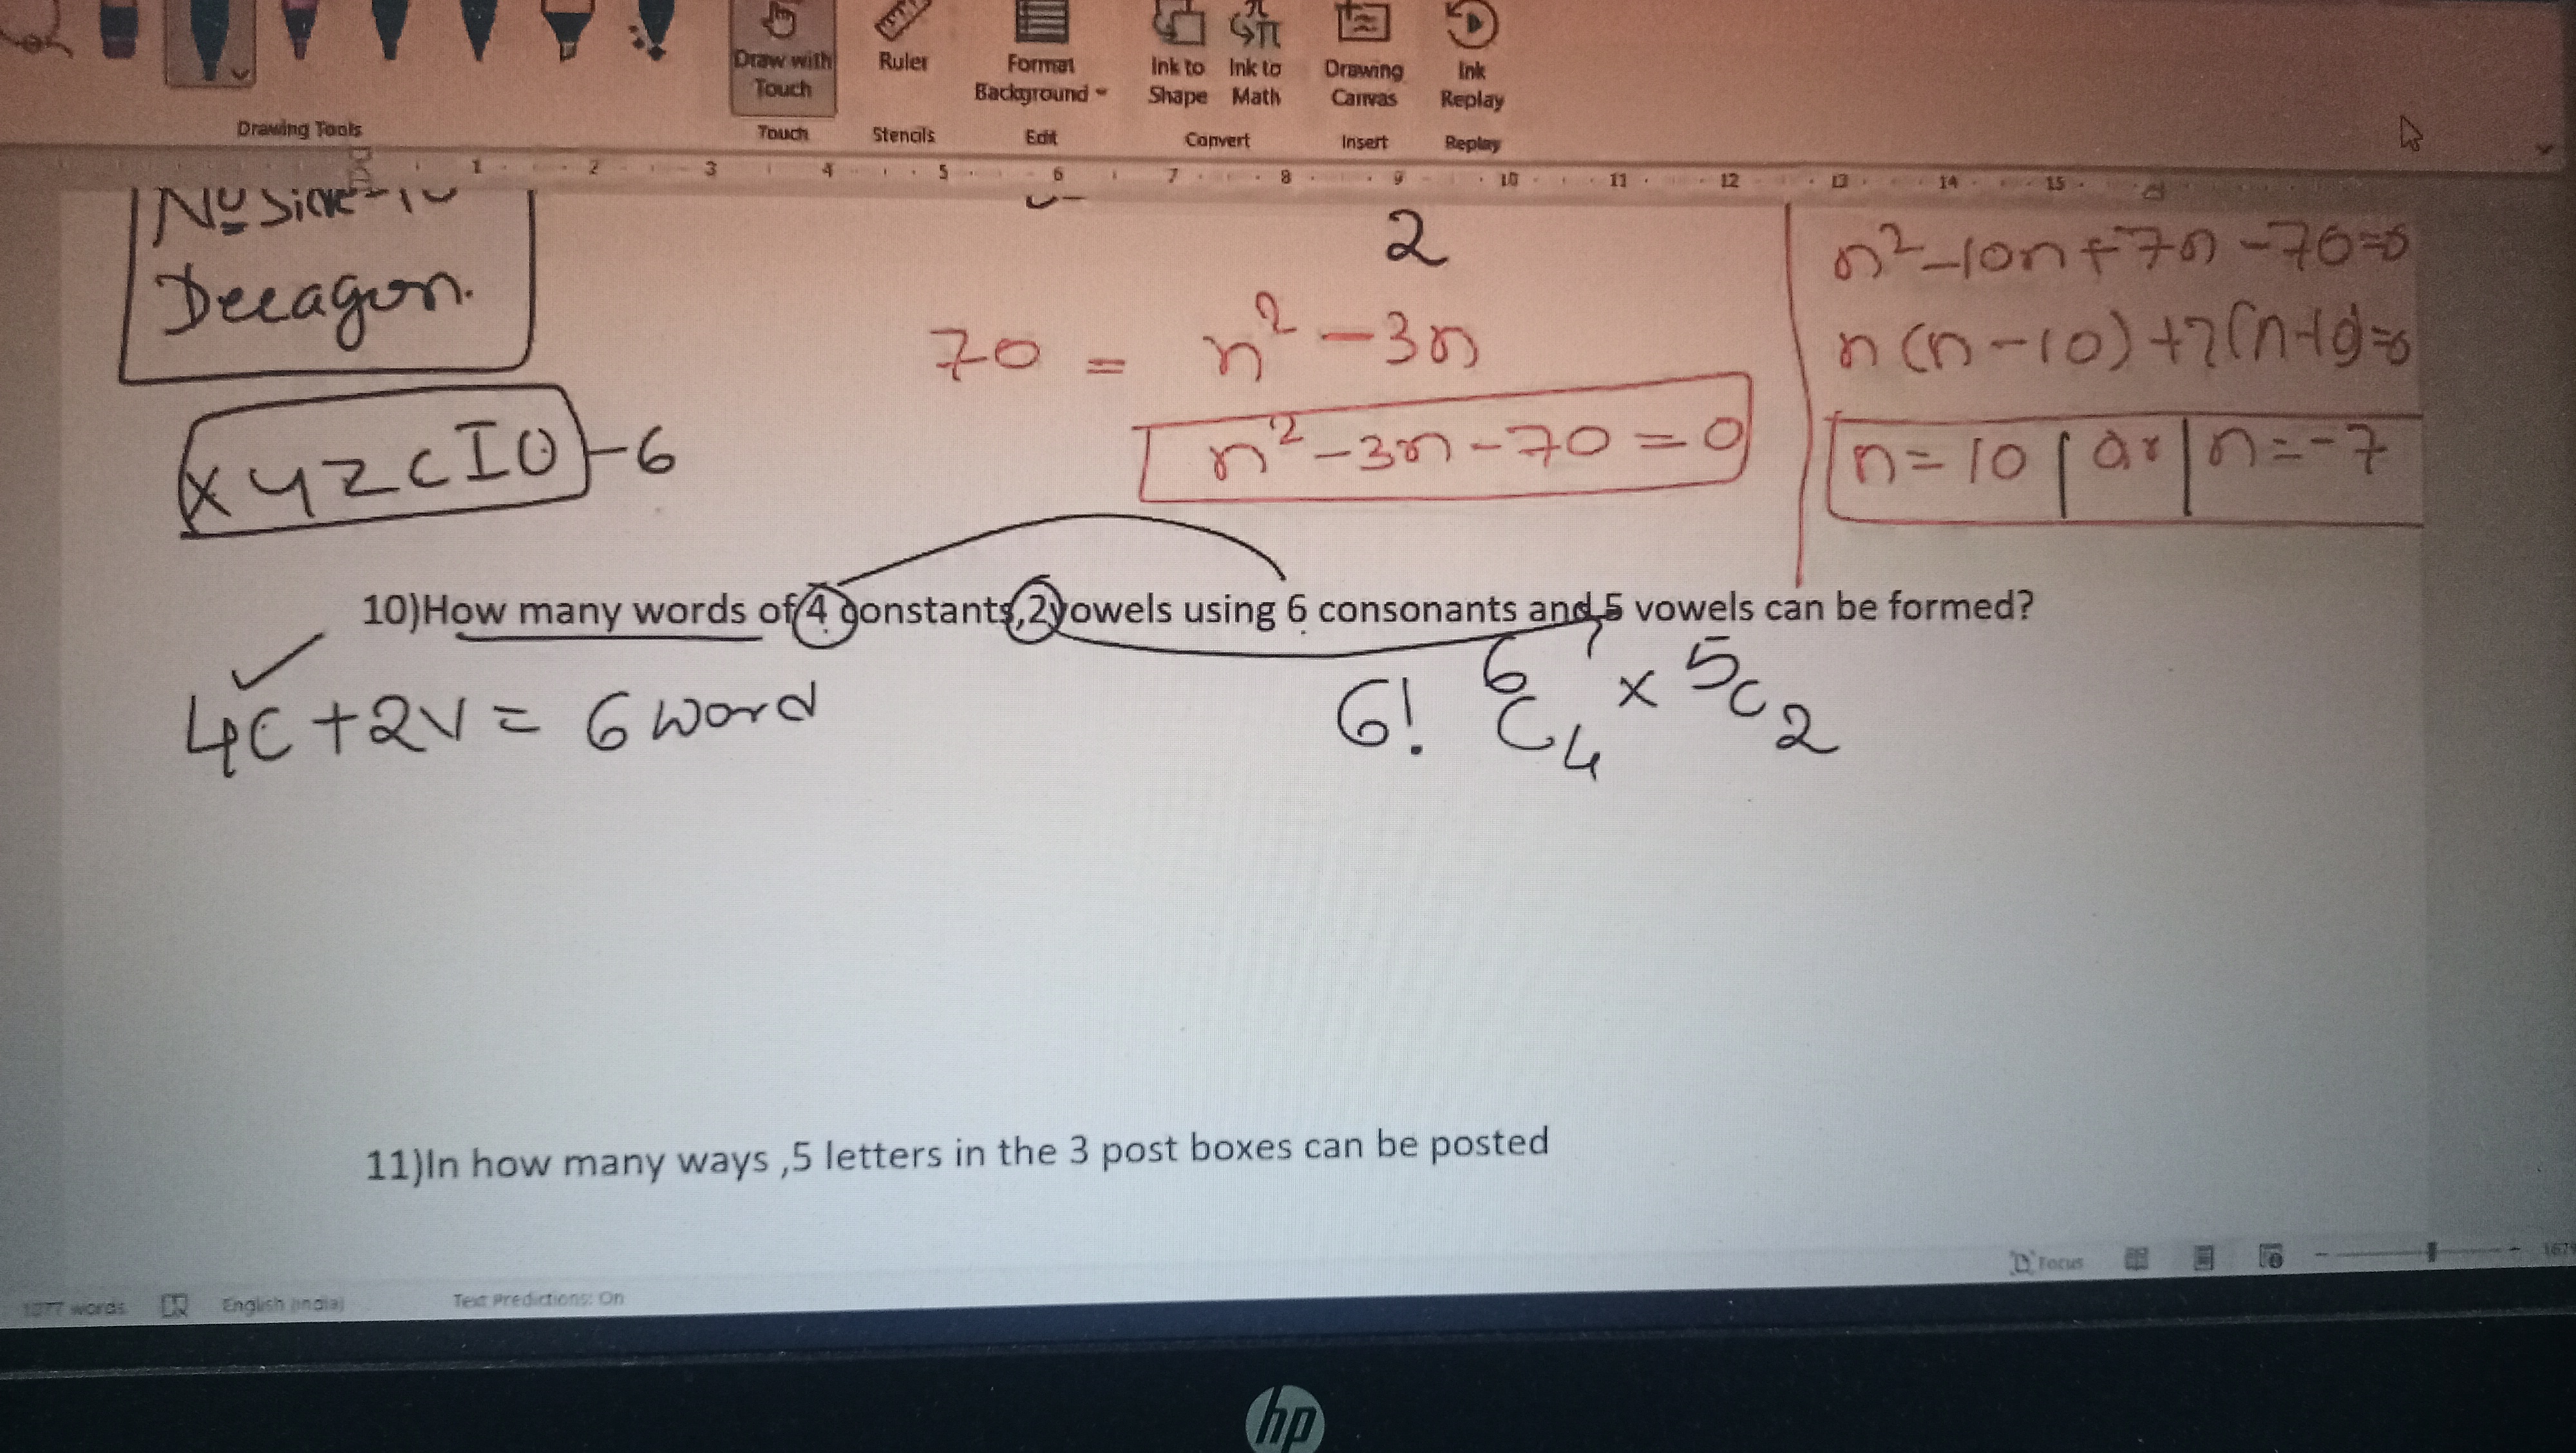 Draw with Touch
Ruler
Format Background
Ink to Shape
Ink to Math
Drawing Canvas
Ink Replay
Drawing Tools
Touch
Stencils
Edit
Convert
Insert
Replay
1 2 3 4 5 6 7 8 9 10 11 12 13 14 15
2
n²-10n+7n-70=0
Decagon.
70 = n²-3n
xyzcIO-6
n²-3n-70=0
n=10 or n=-7
10)How many words of 4 constants,2vowels using 6 consonants and 5 vowels can be formed?
4C+2V=6 word
6! 6C4 x 5C2
11)In how many ways ,5 letters in the 3 post boxes can be posted
1077 words
English (India)
Text Predictions: On
Focus
hp